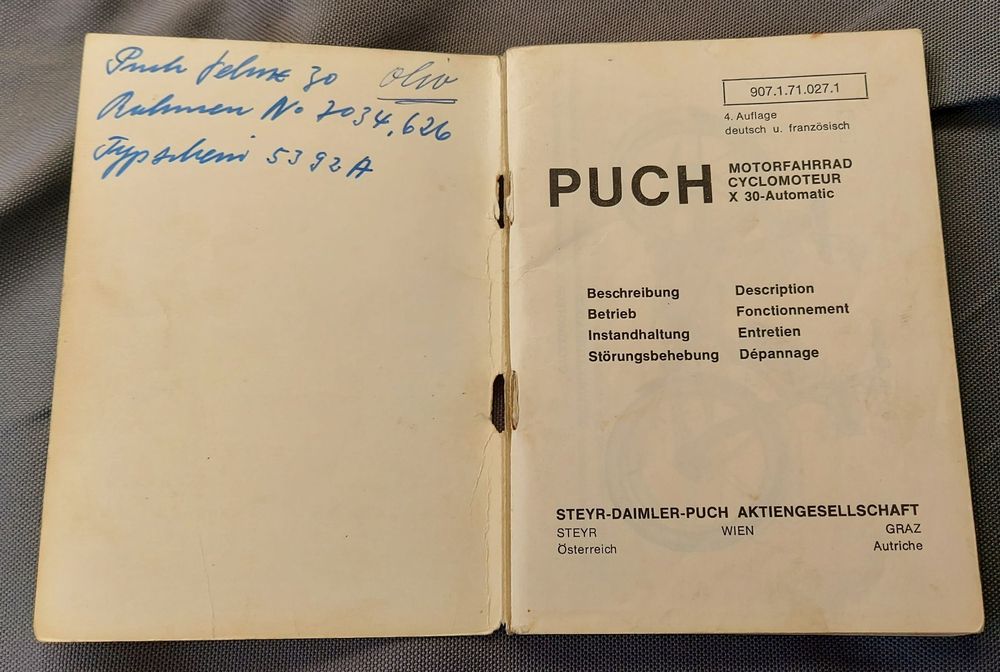 Puch Velux 30 oliv
Rahmen No 7034.626
Typschein 5392A
907.1.71.027.1
4. Auflage
deutsch u. französisch
PUCH
MOTORFAHRRAD
CYCLOMOTEUR
X 30-Automatic
Beschreibung Description
Betrieb Fonctionnement
Instandhaltung Entretien
Störungsbehebung Dépannage
STEYR-DAIMLER-PUCH AKTIENGESELLSCHAFT
STEYR WIEN GRAZ
Österreich Autriche